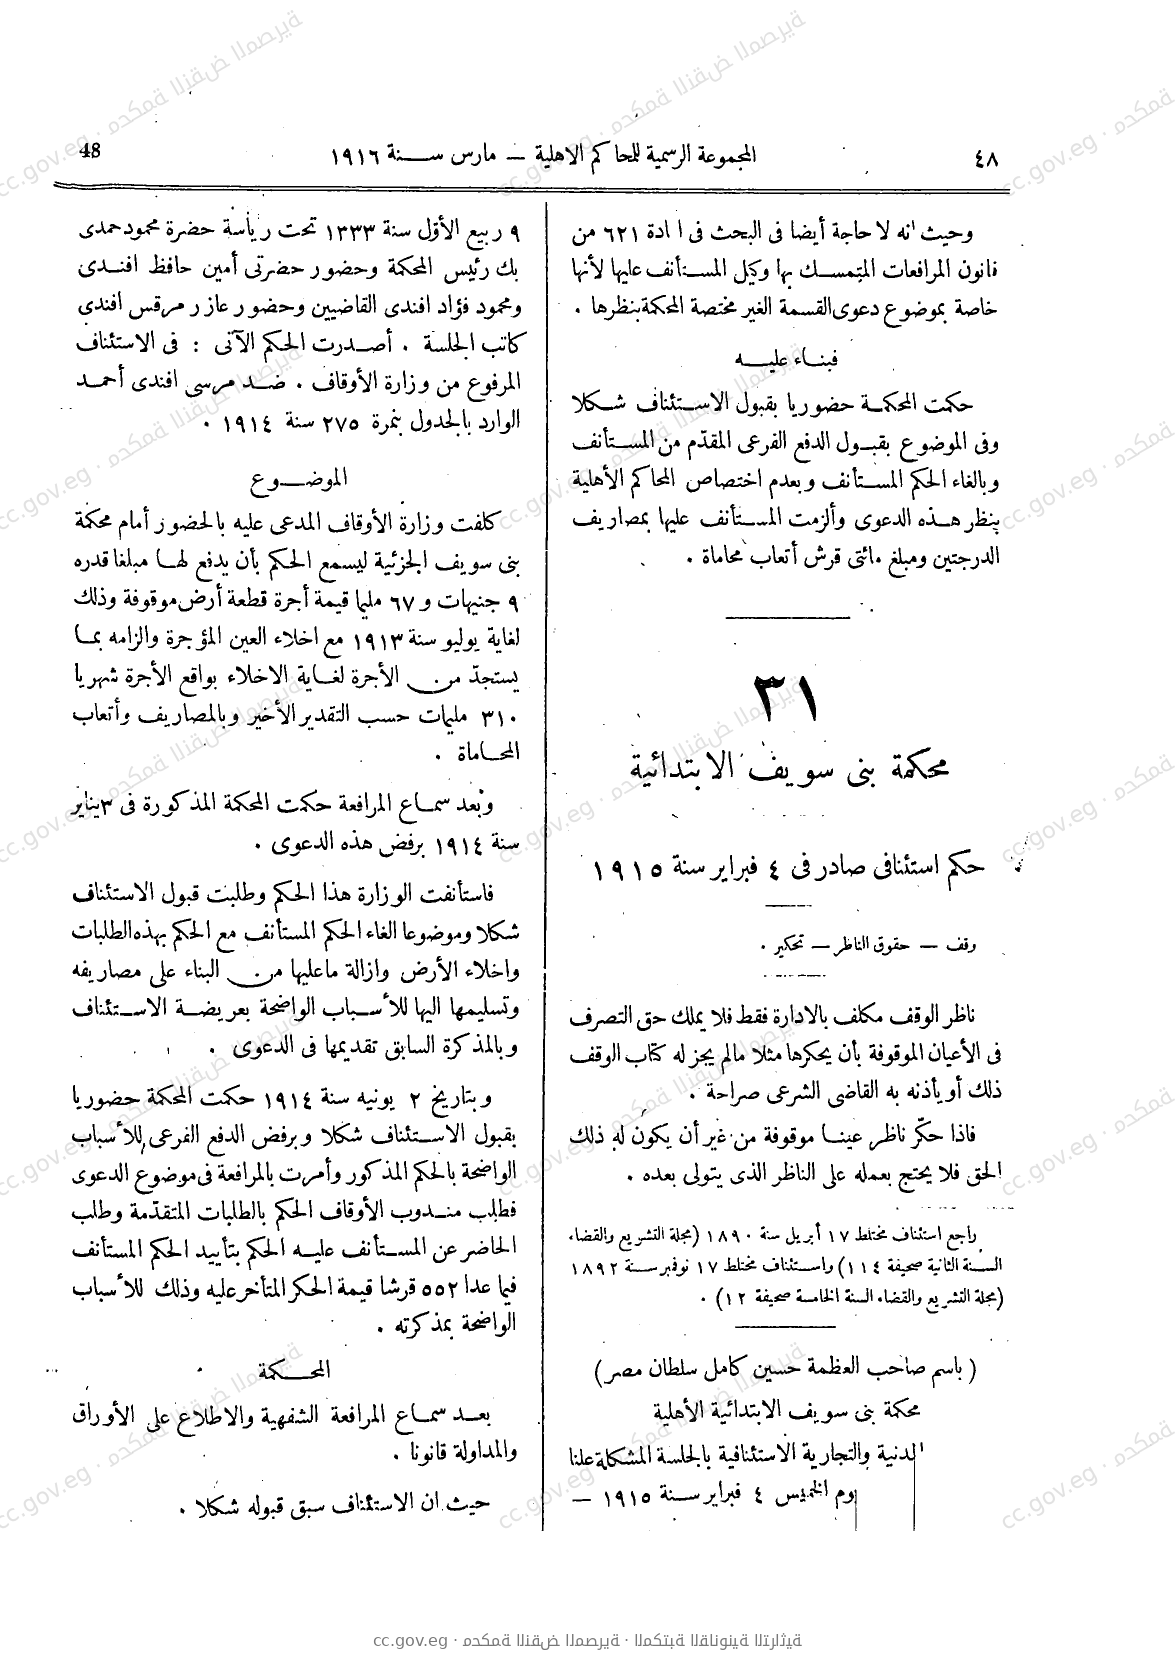 ٤٨
المجموعة الرسمية للمحاكم الاهلية — مارس سنة ١٩١٦
48
وحيث انه لا حاجة أيضا فى البحث فى ادة ٦٢١ من
قانون المرافعات المتمسك بها وكيل المستأنف عليها لأنها
خاصة بموضوع دعوى القسمة الغير مختصة المحكمة بنظرها .
فبناء عليه
حكمت المحكمة حضوريا بقبول الاستئناف شكلا
وفى الموضوع بقبول الدفع الفرعى المقدّم من المستأنف
وبالغاء الحكم المستأنف وبعدم اختصاص المحاكم الأهلية
بنظر هذه الدعوى وألزمت المستأنف عليها بمصاريف
الدرجتين ومبلغ مائتى قرش أتعاب محاماة .
٣١
محكمة بنى سويف الابتدائية
حكم استئنافى صادر فى ٤ فبراير سنة ١٩١٥
وقف — حقوق الناظر — تحكير .
ناظر الوقف مكلف بالادارة فقط فلا يملك حق التصرف
فى الأعيان الموقوفة بأن يحكرها مثلا مالم يجز له كتاب الوقف
ذلك أو يأذنه به القاضى الشرعى صراحة .
فاذا حكّر ناظر عينا موقوفة من غير أن يكون له ذلك
الحق فلا يحتج بعمله على الناظر الذى يتولى بعده .
راجع استئناف مختلط ١٧ أبريل سنة ١٨٩٠ (مجلة التشريع والقضاء
السنة الثانية صحيفة ١١٤) واستئناف مختلط ١٧ نوفمبر سنة ١٨٩٢
(مجلة التشريع والقضاء السنة الخامسة صحيفة ١٢) .
( باسم صاحب العظمة حسين كامل سلطان مصر )
محكمة بنى سويف الابتدائية الأهلية
لدنية والتجارية الاستئنافية بالجلسة المشكلة علنا
وم الخميس ٤ فبراير سنة ١٩١٥ —
٩ ربيع الأوّل سنة ١٣٣٣ تحت رياسة حضرة محمود حمدى
بك رئيس المحكمة وحضور حضرتى أمين حافظ افندى
ومحمود فؤاد افندى القاضيين وحضور عازر مرقس افندى
كاتب الجلسة . أصدرت الحكم الآتى : فى الاستئناف
المرفوع من وزارة الأوقاف . ضد مرسى افندى أحمد
الوارد بالجدول بنمرة ٢٧٥ سنة ١٩١٤ .
الموضوع
كلفت وزارة الأوقاف المدعى عليه بالحضور أمام محكمة
بنى سويف الجزئية ليسمع الحكم بأن يدفع لها مبلغا قدره
٩ جنيهات و ٦٧ مليما قيمة أجرة قطعة أرض موقوفة وذلك
لغاية يوليو سنة ١٩١٣ مع اخلاء العين المؤجرة والزامه بما
يستجدّ من الأجرة لغاية الاخلاء بواقع الأجرة شهريا
٣١٠ مليمات حسب التقدير الأخير وبالمصاريف وأتعاب
المحاماة .
وبعد سماع المرافعة حكمت المحكمة المذكورة فى ٣ يناير
سنة ١٩١٤ برفض هذه الدعوى .
فاستأنفت الوزارة هذا الحكم وطلبت قبول الاستئناف
شكلا وموضوعا الغاء الحكم المستأنف مع الحكم بهذه الطلبات
واخلاء الأرض وازالة ما عليها من البناء على مصاريفه
وتسليمها اليها للأسباب الواضحة بعريضة الاستئناف
وبالمذكرة السابق تقديمها فى الدعوى .
وبتاريخ ٢ يونيه سنة ١٩١٤ حكمت المحكمة حضوريا
بقبول الاستئناف شكلا وبرفض الدفع الفرعى للأسباب
الواضحة بالحكم المذكور وأمرت بالمرافعة فى موضوع الدعوى
فطلب مندوب الأوقاف الحكم بالطلبات المتقدّمة وطلب
الحاضر عن المستأنف عليه الحكم بتأييد الحكم المستأنف
فيما عدا ٥٥٢ قرشا قيمة الحكر المتأخر عليه وذلك للأسباب
الواضحة بمذكرته .
المحكمة
بعد سماع المرافعة الشفهية والاطلاع على الأوراق
والمداولة قانونا .
حيث ان الاستئناف سبق قبوله شكلا .
cc.gov.eg · محكمة النقض المصرية · المكتبة القانونية التراثية